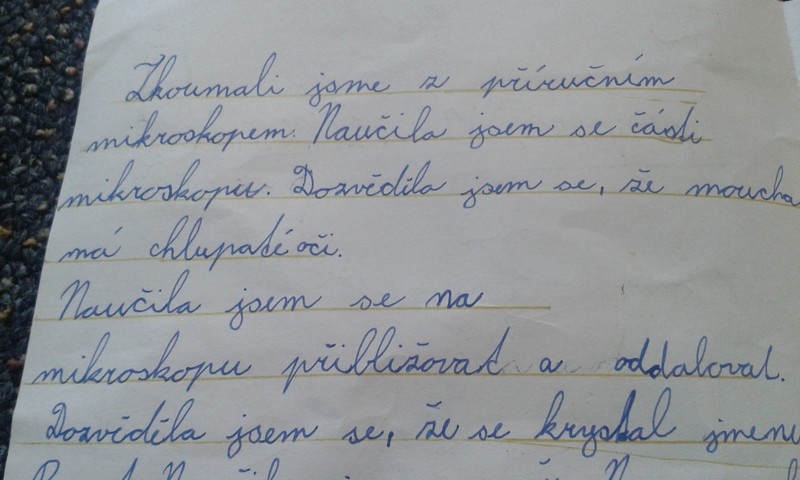 Zkoumali jsme z příručním
mikroskopem. Naučila jsem se části
mikroskopu. Dozvěděla jsem se, že moucha
má chlupaté oči.
Naučila jsem se na
mikroskopu přibližovat a oddalovat.
Dozvěděla jsem se, že se krystal jmenu